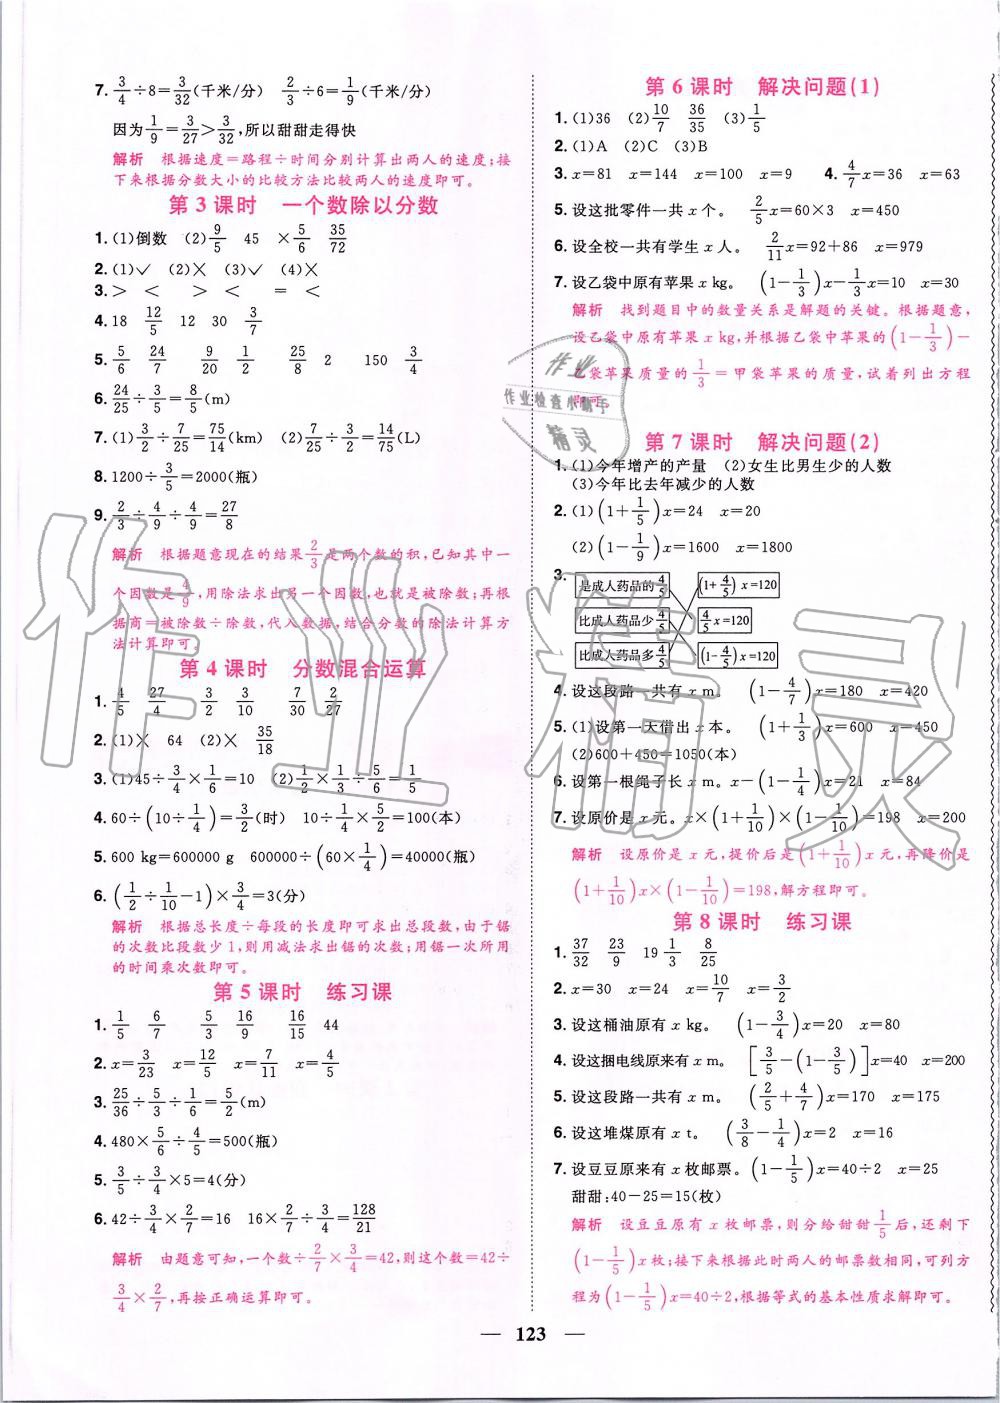 7. 3/4÷8=3/32(千米/分) 2/3÷6=1/9(千米/分)
因为1/9=3/27>3/32,所以甜甜走得快
解析 根据速度=路程÷时间分别计算出两人的速度;接
下来根据分数大小的比较方法比较两人的速度即可。
第3课时 一个数除以分数
1. (1)倒数 (2)9/5 45 ×5/6 35/72
2. (1)✓ (2)✕ (3)✓ (4)✕
3. > < > < = <
4. 18 12/5 12 30 3/7
5. 5/6 24/7 9/20 1/2 25/8 2 150 3/4
6. 24/25÷3/5=8/5(m)
7. (1)3/2÷7/25=75/14(km) (2)3/2÷7/25=14/75(L)
8. 1200÷3/5=2000(瓶)
9. 2/3÷4/9÷4/9=27/8
解析 根据题意现在的结果2/3是两个数的积,已知其中一
个因数是4/9,用除法求出另一个因数,也就是被除数;再根
据商=被除数÷除数,代入数据,结合分数的除法计算方
法计算即可。
第4课时 分数混合运算
1. 4/5 27/4 3/2 3/10 7/30 2/27
2. (1)✕ 64 (2)✕ 35/18
3. (1)45÷3/4×1/6=10 (2)1/2×1/3÷5/6=1/5
4. 60÷(10÷1/4)=3/2(时) 10÷1/4×5/2=100(本)
5. 600 kg=600000 g 600000÷(60×1/4)=40000(瓶)
6. (1/2÷1/10-1)×3/4=3(分)
解析 根据总长度÷每段的长度即可求出总段数,由于锯
的次数比段数少1,则用减法求出锯的次数;用锯一次所用
的时间乘次数即可。
第5课时 练习课
1. 1/5 6/7 5/3 16/9 16/15 44
2. x=3/23 x=12/5 x=7/11 x=4/3
3. 25/36÷5/3÷1/6=5/2(m)
4. 480×5/6÷4/5=500(瓶)
5. 3/5÷3/4×5=4(分)
6. 42÷3/4×2/7=16 16×2/7÷3/4=128/21
解析 由题意可知,一个数÷2/7×3/4=42,则这个数=42÷
3/4×2/7,再按正确运算即可。
第6课时 解决问题(1)
1. (1)36 (2)10/7 36/35 (3)1/5
2. (1)A (2)C (3)B
3. x=81 x=144 x=100 x=9 4. 4/7x=36 x=63
5. 设这批零件一共有x个。 2/5x=60×3 x=450
6. 设全校一共有学生x人。 2/11x=92+86 x=979
7. 设乙袋中原有苹果x kg。 (1-1/3)x-1/3x=10 x=30
解析 找到题目中的数量关系是解题的关键。根据题意,
设乙袋中原有苹果x kg,并根据乙袋中苹果的(1-1/3)-
乙袋苹果质量的1/3=甲袋苹果的质量,试着列出方程
即可。
第7课时 解决问题(2)
1. (1)今年增产的产量 (2)女生比男生少的人数
(3)今年比去年减少的人数
2. (1)(1+1/5)x=24 x=20
(2)(1-1/9)x=1600 x=1800
3. 是成人药品的4/5 (1+4/5)x=120
比成人药品少4/5 4/5x=120
比成人药品多4/5 (1-4/5)x=120
4. 设这段路一共有x m。 (1-4/7)x=180 x=420
5. (1)设第一天借出x本。 (1+1/3)x=600 x=450
(2)600+450=1050(本)
6. 设第一根绳子长x m。x-(1-1/4)x=21 x=84
7. 设原价是x元。x×(1+1/10)×(1-1/10)=198 x=200
解析 设原价是x元,提价后是(1+1/10)x元,再降价是
(1+1/10)x×(1-1/10)=198,解方程即可。
第8课时 练习课
1. 37/32 23/9 19 1/3 8/25
2. x=30 x=24 x=10/7 x=3/2
3. 设这桶油原有x kg。 (1-3/4)x=20 x=80
4. 设这捆电线原来有x m。 [3/5-(1-3/5)]x=40 x=200
5. 设这段路一共有x m。 (2/5+4/7)x=170 x=175
6. 设这堆煤原有x t。 (3/8-1/4)x=2 x=16
7. 设豆豆原来有x枚邮票。(1-1/5)x=40÷2 x=25
甜甜:40-25=15(枚)
解析 设豆豆原有x枚邮票,则分给甜甜1/5后,还剩下
(1-1/5)x枚;接下来根据此时两人的邮票数相同,可列方
程为(1-1/5)x=40÷2,根据等式的基本性质求解即可。
123
作业
作业检查小助手
精灵
作业精灵